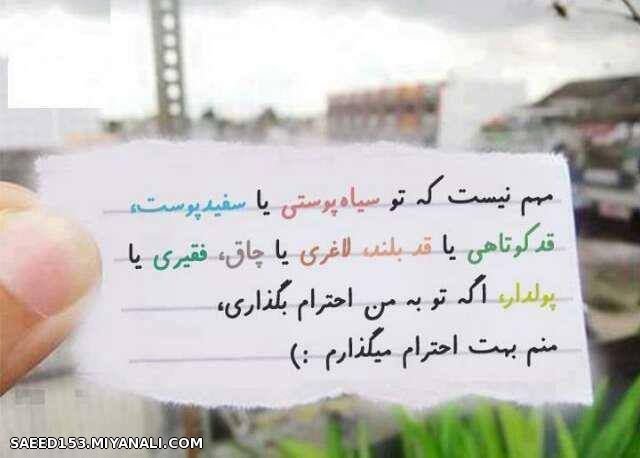 مهم نیست که تو سیاه‌پوستی یا سفیدپوست،
قدکوتاهی یا قد بلند، لاغری یا چاق، فقیری یا
پولدار، اگه تو به من احترام بگذاری،
منم بهت احترام میگذارم :)
SAEED153.MIYANALI.COM